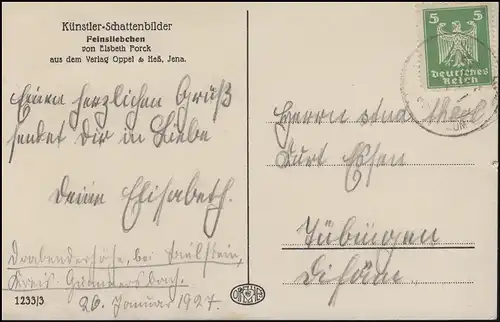 Künstler-Schattenbilder
Feinsliebchen
von Elsbeth Forck
aus dem Verlag Oppel & Heß, Jena.
Einen herzlichen Gruß
sendet Dir in Liebe
Deine Elisabeth.
Drabenderhöhe, bei Bielstein,
Kreis Gummersbach.
26. Januar 1927.
1233/3
5 5
Deutsches
Reich
Herrn stud. theol.
Kurt Essen
Tübingen